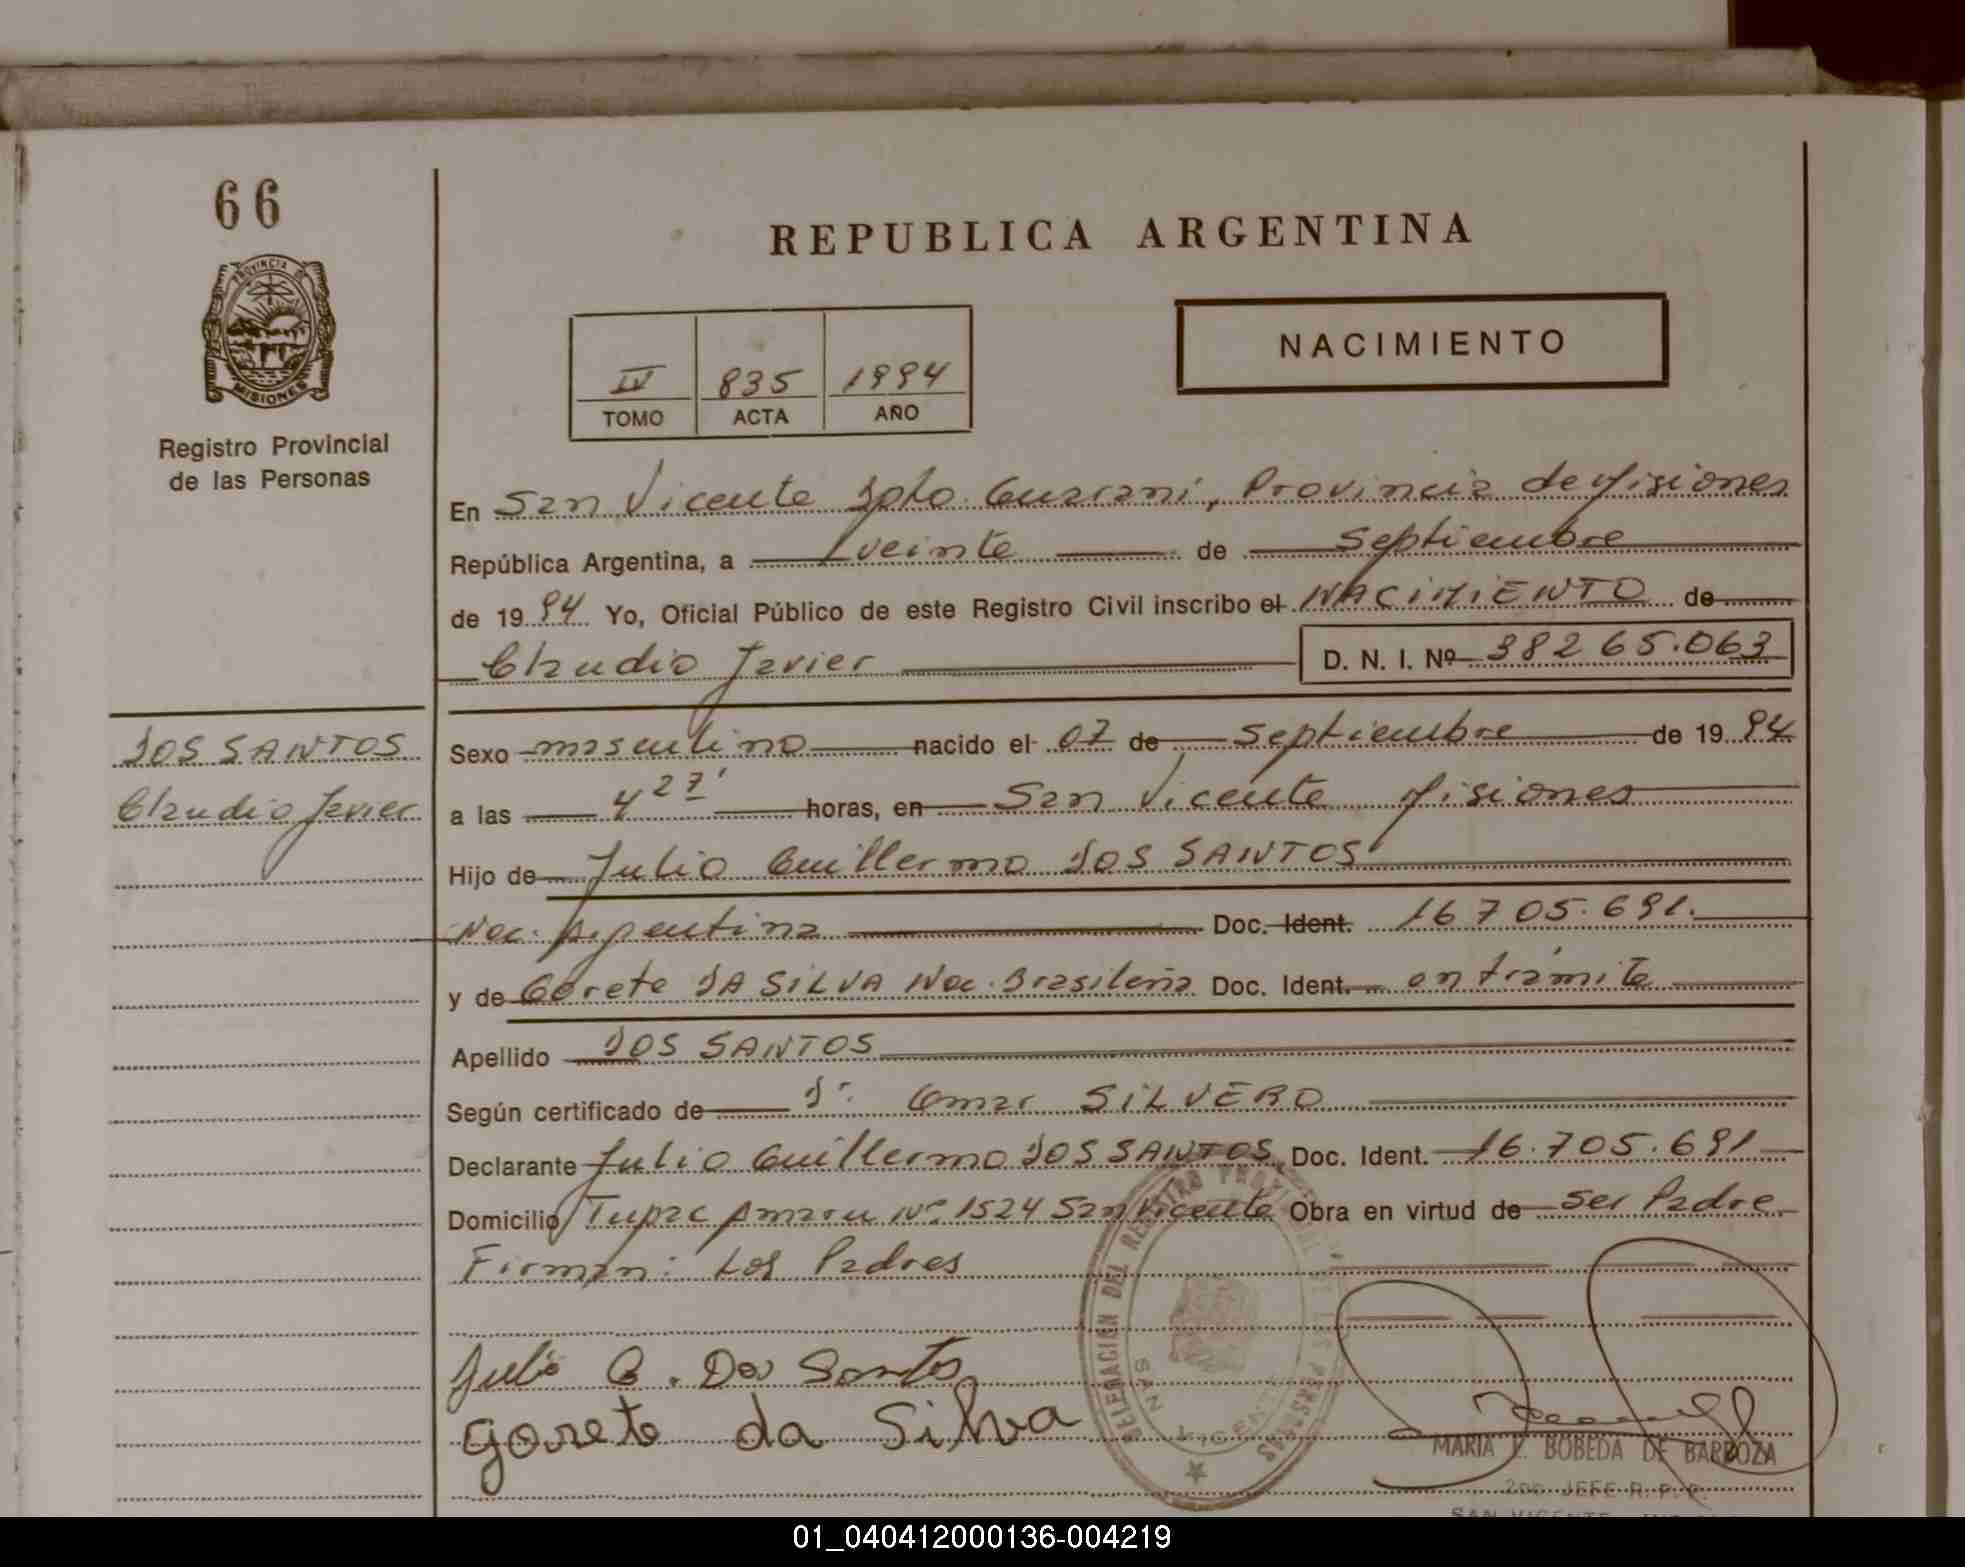 66
REPUBLICA ARGENTINA
PROVINCIA DE
MISIONES
Registro Provincial
de las Personas
IV 835 1994
TOMO ACTA AÑO
NACIMIENTO
En San Vicente Dpto. Guaraní, Provincia de Misiones
República Argentina, a veinte de Septiembre
de 1994 Yo, Oficial Público de este Registro Civil inscribo el NACIMIENTO de
Claudio Javier D. N. I. Nº 38265.063
DOS SANTOS
Claudio Javier
Sexo masculino nacido el 07 de Septiembre de 1994
a las 4 27' horas, en San Vicente Misiones
Hijo de Julio Guillermo DOS SANTOS
Nac. Argentina Doc. Ident. 16705.691.
y de Gorete DA SILVA Nac. Brasileña Doc. Ident. en trámite
Apellido DOS SANTOS
Según certificado de Dr. Omar SILVERO
Declarante Julio Guillermo DOS SANTOS Doc. Ident. 16.705.691
Domicilio Tupac Amaru Nº 1524 San Vicente Obra en virtud de ser Padre
Firman: Los Padres
Julio G. Dos Santos
gorete da Silva
DELEGACION DEL REGISTRO PROVINCIAL DE LAS PERSONAS
SAN VICENTE
MARIA E. BOBEDA DE BARBOZA
2do. JEFE R. P. P.
SAN VICENTE
01_040412000136-004219